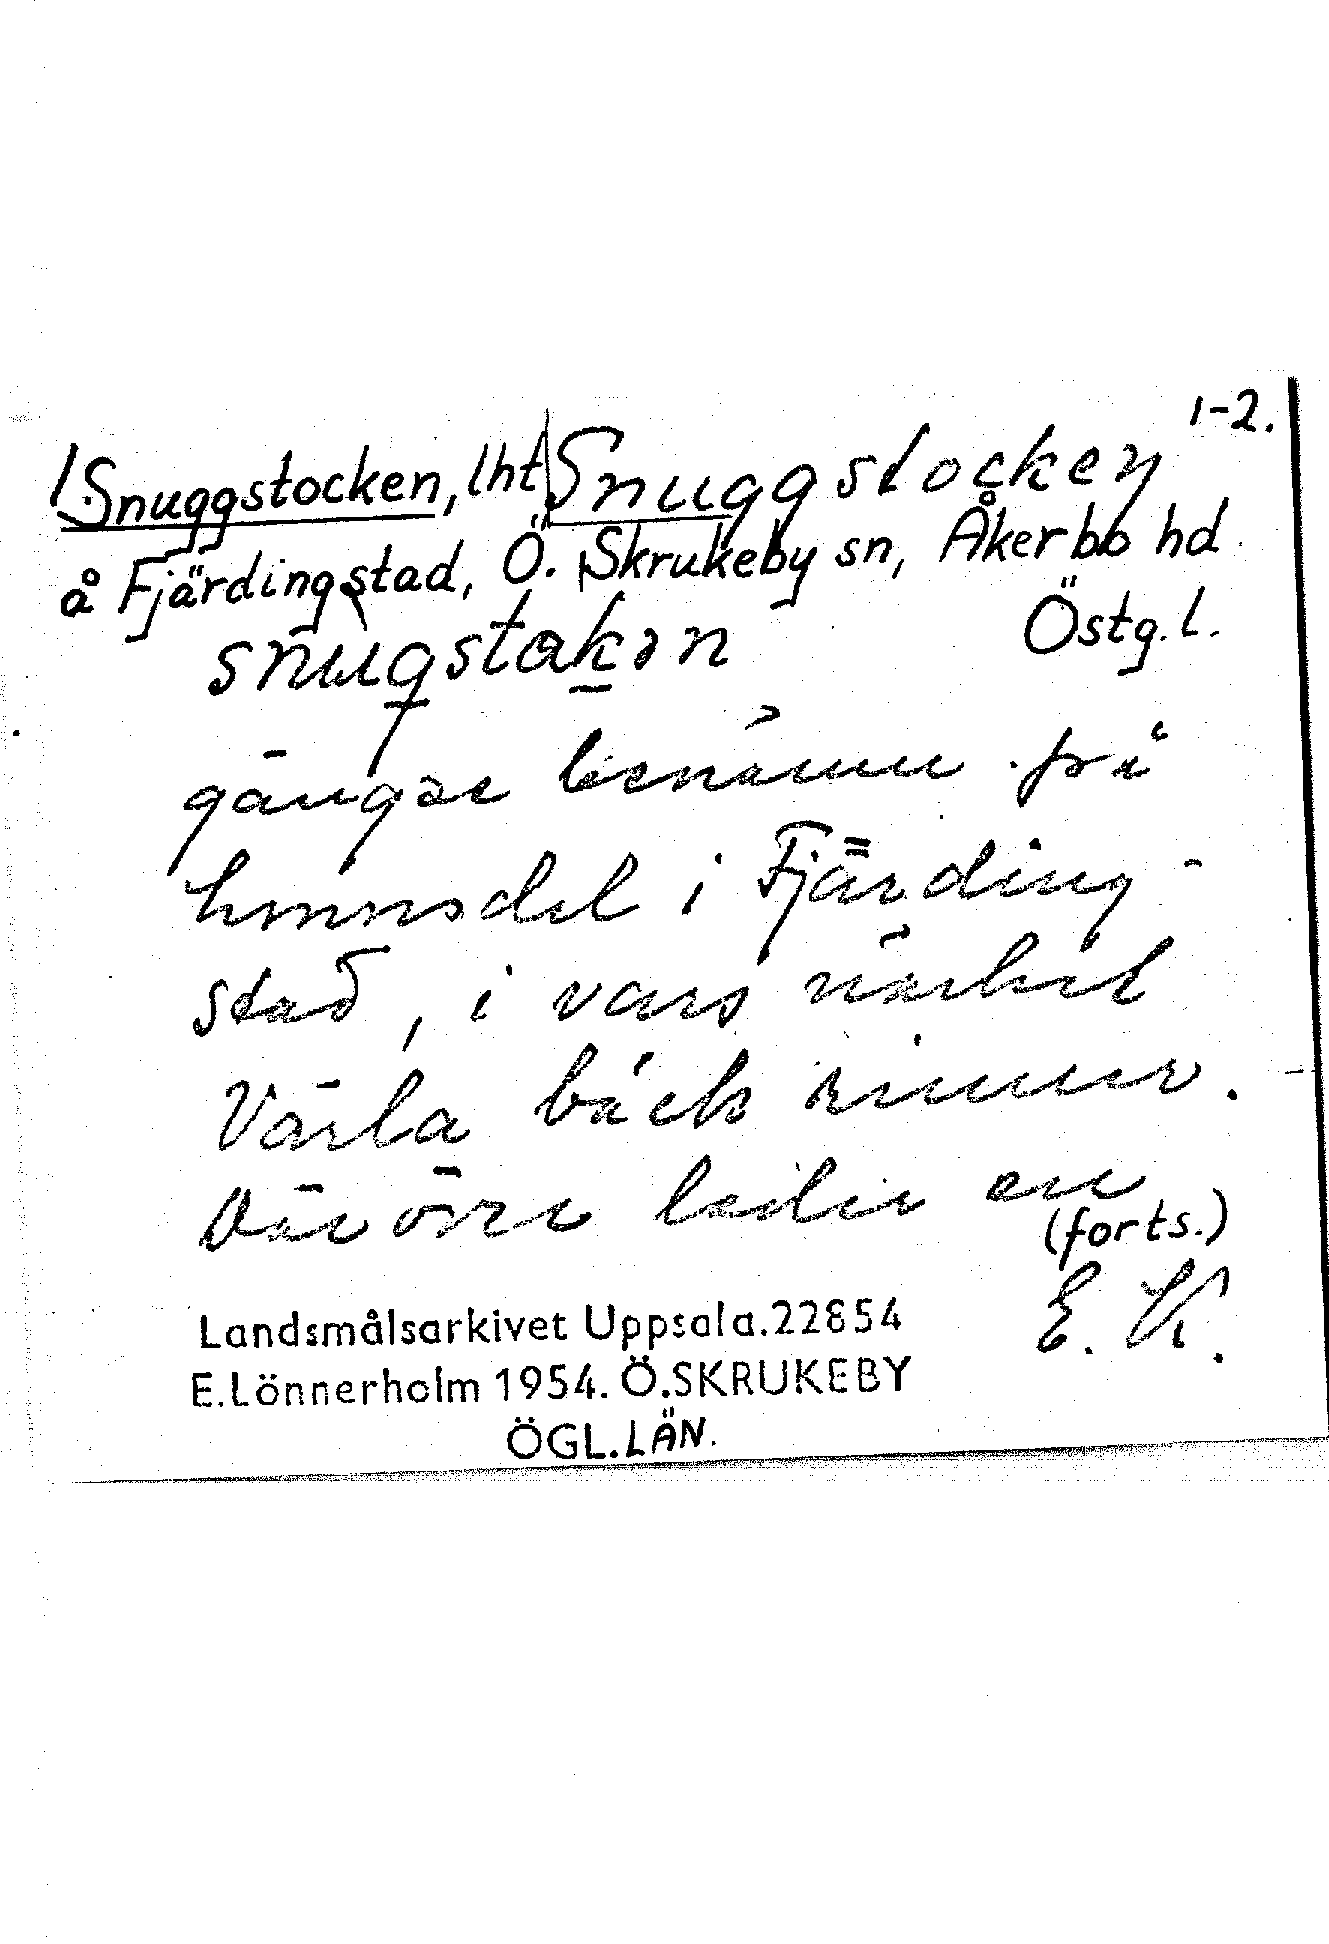 1-2.
Snuggstocken, lht Snuggstocken
å Fjärdingstad, Ö. Skrukeby sn, Åkerbo hd
Östg. l.
snugstokən
gängse benämn på
hemmsdel i Fjärding-
stad, i vars närhet
Värla bäck rinner.
Däröver leder en
(forts.)
E. K.
Landsmålsarkivet Uppsala.22854
E.Lönnerholm 1954. Ö.SKRUKEBY
ÖGL.LÄN.